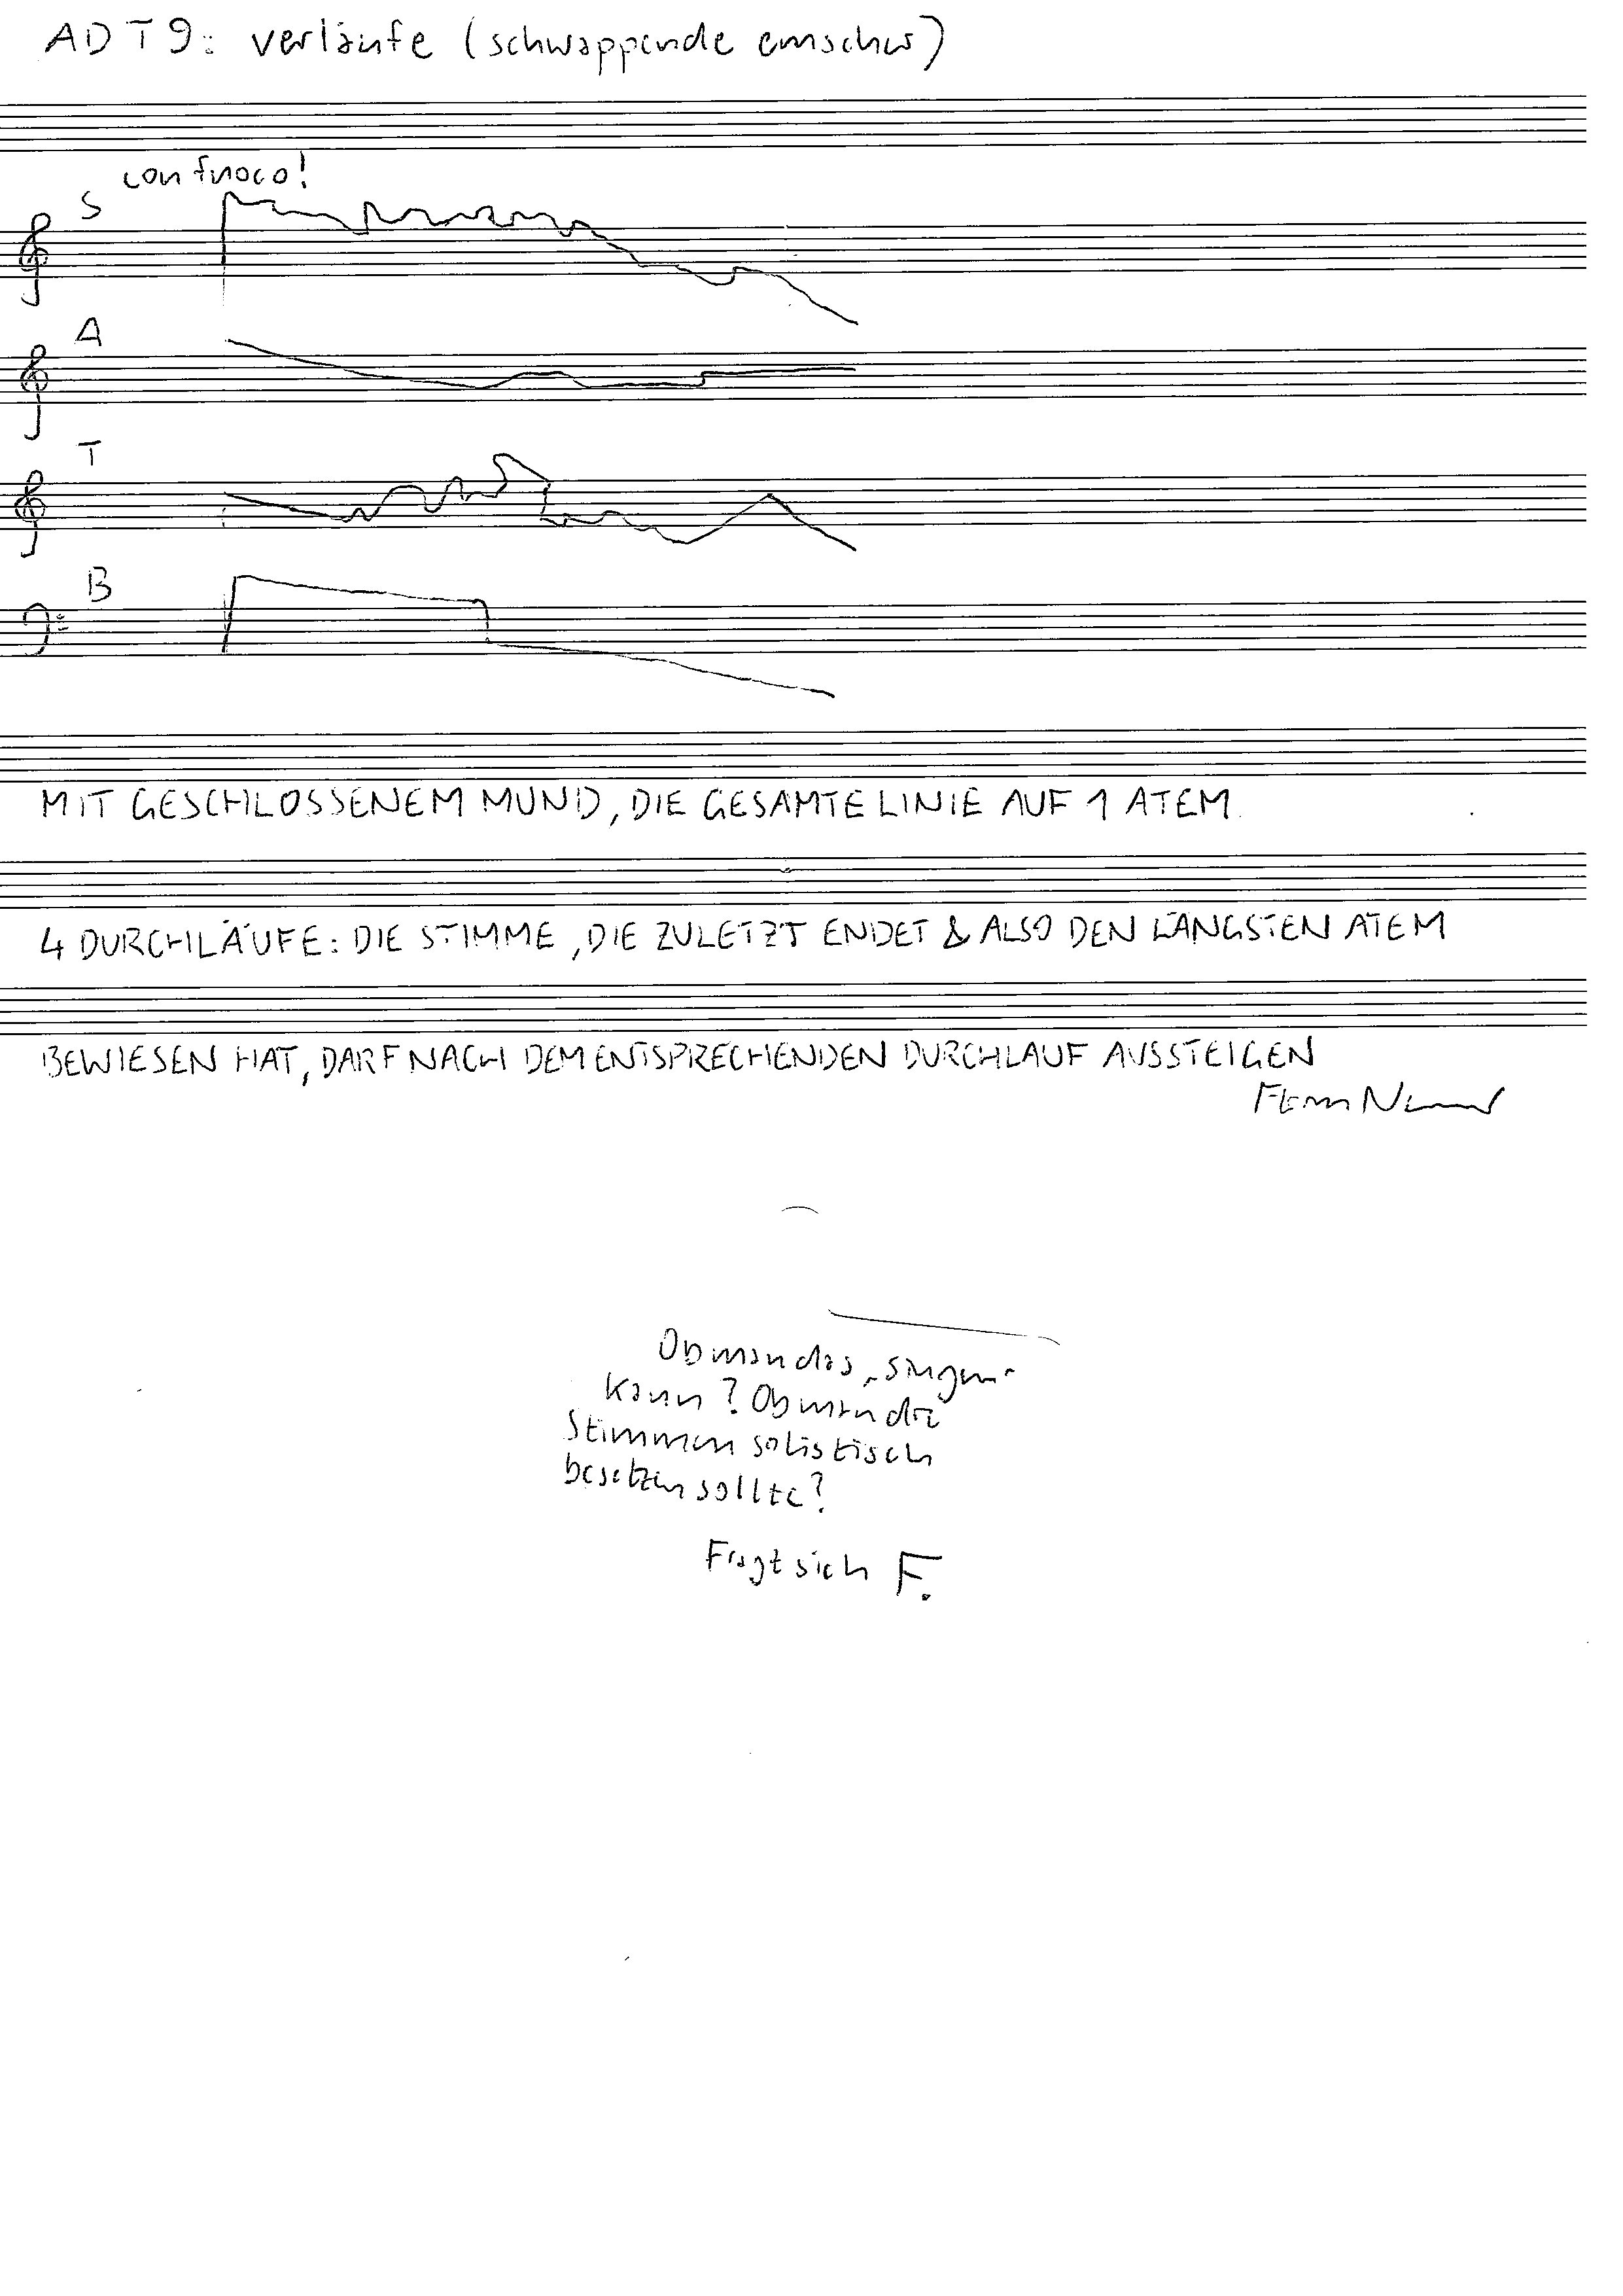 ADT9: verläufe (schwappende emscher)
con fuoco!
S
A
T
B
MIT GESCHLOSSENEM MUND, DIE GESAMTE LINIE AUF 1 ATEM
4 DURCHLÄUFE: DIE STIMME, DIE ZULETZT ENDET & ALSO DEN LÄNGSTEN ATEM
BEWIESEN HAT, DARF NACH DEM ENTSPRECHENDEN DURCHLAUF AUSSTEIGEN
Ob man das „singen"
kann? Ob man die
Stimmen solistisch
besetzen sollte?
Fragt sich F.